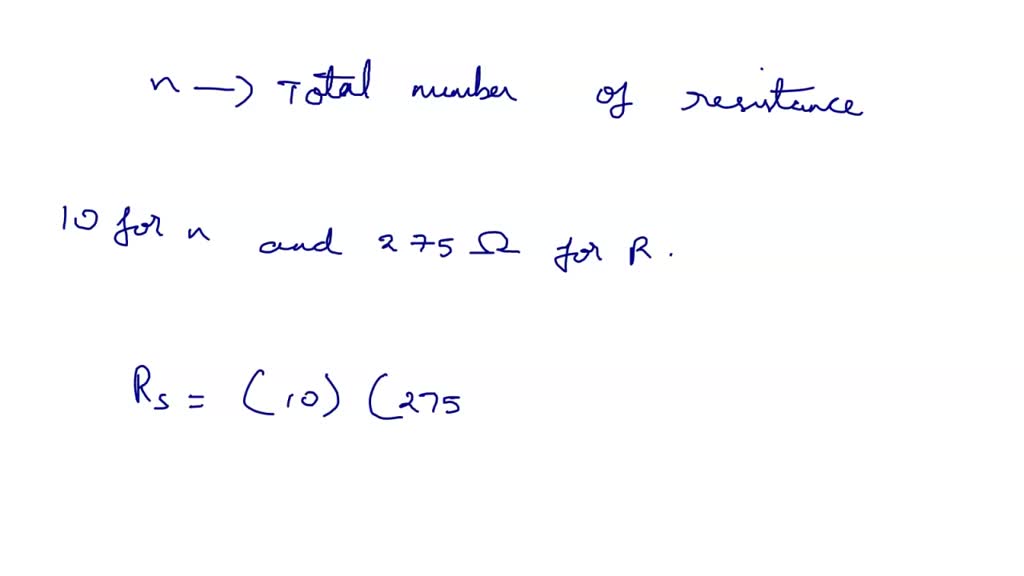 n → Total number of resistance
10 for n and 275 Ω for R.
Rs = (10) (275